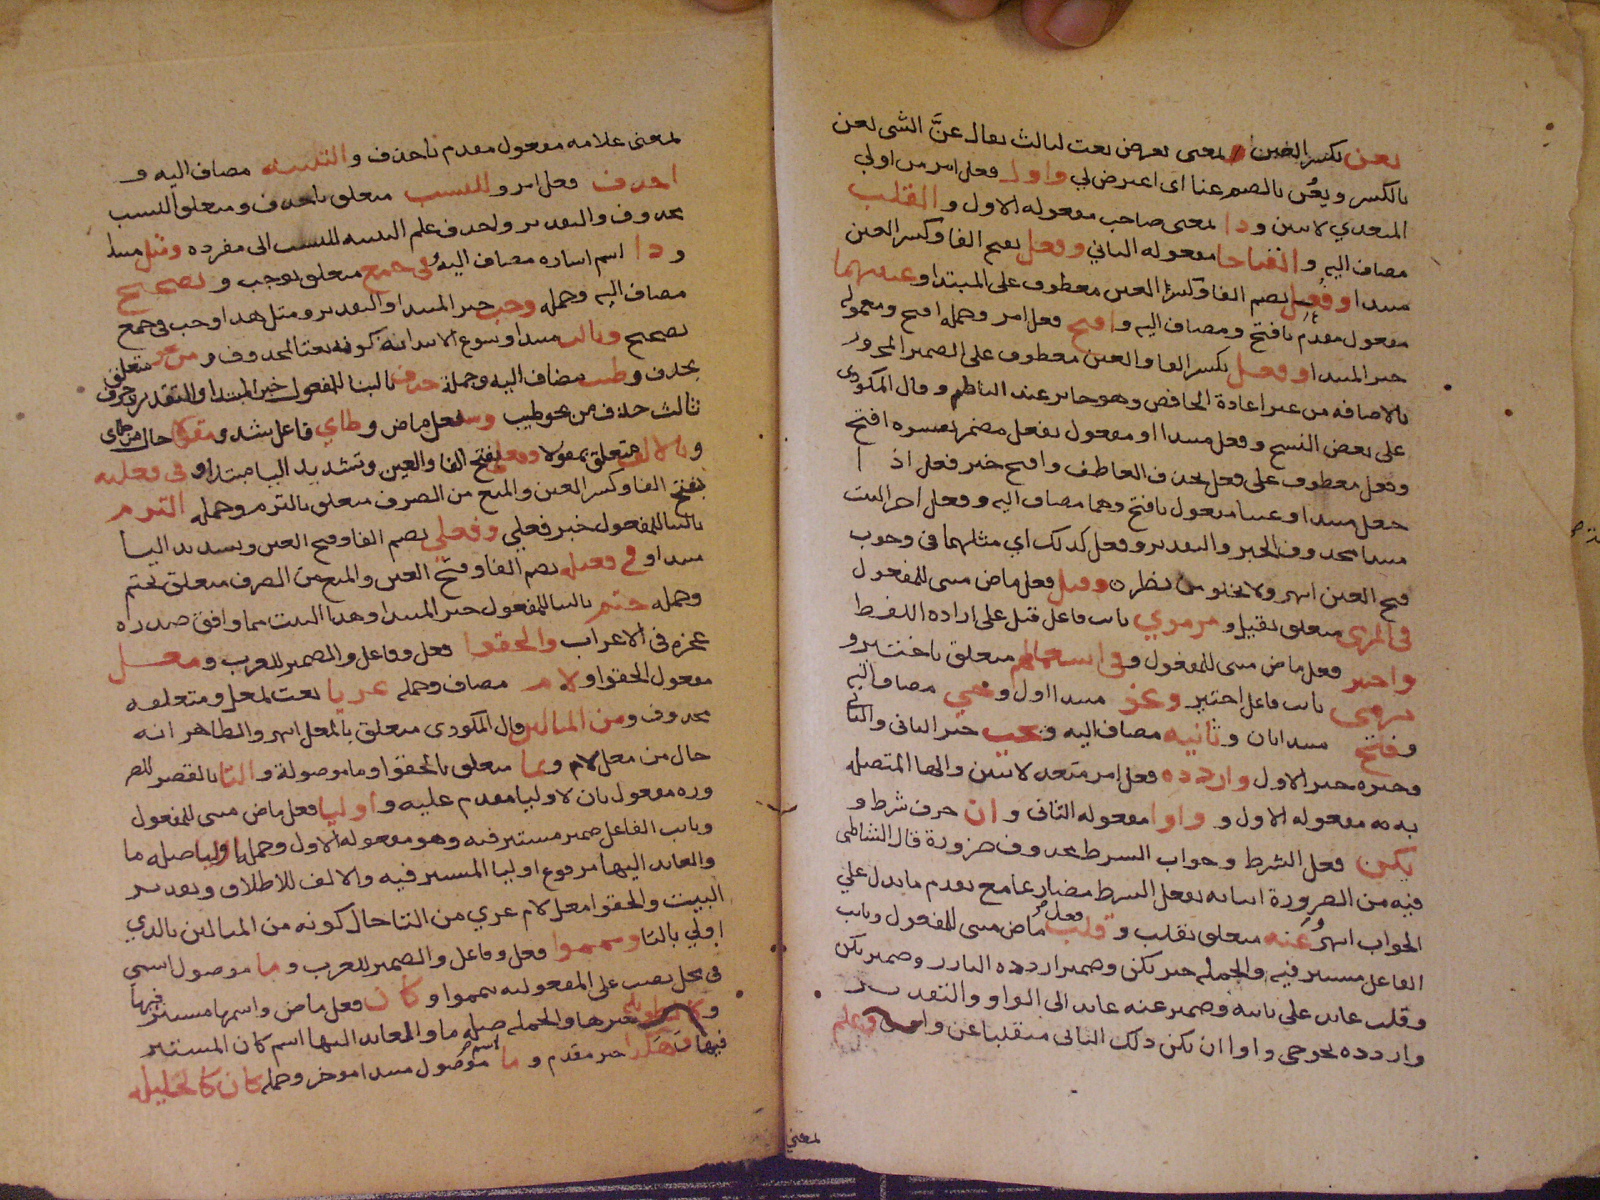 يعن بكسر العين بمعنى يعرض نعت لثالث يقال عنَّ الشى يعن
بالكسر ويعُن بالضم عنا اى اعترض لي واول فعل امر من اولي
المتعدي لاثنين وذا بمعنى صاحب مفعوله الاول والقلب
مضاف اليه وانفتاحا مفعوله الثاني وفعل بفتح الفا وكسر العين
مبتدا وفُعِل بضم الفا وكسر العين معطوف على المبتدا وعينهما
مفعول مقدم بافتح ومضاف اليه وافتح فعل امر وجمله افتح ومعموله
خبر المبتدا وفعل بكسر الفا والعين معطوف على الضمير المجرور
بالاضافه من غير اعادة الخافض وهو جايز عند الناظم وقال المكودى
على بعض النسخ وفعل مبتدا او مفعول بفعل مضمر يفسره افتح
وفعل معطوف على فعل بحذف العاطف وافتح خبر فعل اذ ا
جعل مبتدا وعينا مفعول بافتح وهما مضاف اليه وفعل اخر البيت
مبتدا محذوف الخبر والتقدير وفعل كذلك اي مثلهما فى وجوب
فتح العين انتهى ولا يخلو من نظر وقيل فعل ماض مبني للمفعول
فى المرمى متعلق بقيل ومرموي نايب فاعل قيل على اراده اللفظ
واختير فعل ماض مبنى للمفعول وفى استعمالهم متعلق باختير و
مرمى نايب فاعل اختير ونحو مبتدا اول وحي مضاف اليه
وفتح مبتدا ثان وثانيه مضاف اليه ويجب خبر الثانى والثانى
وخبره خبر الاول واردده فعل امر متعد لاثنين والها المتصله
به مفعوله الاول و واوا مفعوله الثانى و ان حرف شرط و
يكن فعل الشرط وجواب الشرط محذوف ضرورة قال الشاطبى
فيه من الضرورة اتيانه بفعل الشرط مضارعا مع تقدم ما يدل علي
الجواب انتهى وعنه متعلق بقلب وقلب فعل ماض مبنى للمفعول ونايب
الفاعل مستتر فيه والجمله خبر يكن وضمير اردده البارز وضمير يكن
وقلب عايد على ثانيه وضمير عنه عايد الى الواو والتقدير
واردده نحو حى واوا ان يكن ذلك الثانى منقلبا عن واو وعلم
لمعنى
لمعنى علامه مفعول مقدم باحذف والتثنيه مضاف اليه و
احذف فعل امر و للنسب متعلق باحذف ومتعلق النسب
محذوف والتقدير واحذف علم التثنيه للنسب الى مفرده ومثل مبتدا
و ذا اسم اشاره مضاف اليه وفى جمع متعلق بوجب و تصحيح
مضاف اليه وجمله وجب خبر المبتدا والتقدير ومثل هذا وجب فى جمع
تصحيح وثالث مبتدا وسوغ الابتدا به كونه نعتا لمحذوف و من نحو متعلق
بحذف و طيب مضاف اليه وجملة حذف بالبنا للمفعول خبر المبتدا والتقدير وحرف
ثالث حذف من نحو طيب وشذ فعل ماض و طاي فاعل بشذ و مقولا حال من طاى
وبالالف متعلق بمقولا وفعلي بفتح الفا والعين وتشديد اليا مبتدا و فى فعليه
بفتح الفا وكسر العين والمنع من الصرف متعلق بالتزم وجمله التزم
بالبنا للمفعول خبر فعلي وفعلي بضم الفا وفتح العين وتشديد اليا
مبتدا و فى فعيله بضم الفا وفتح العين والمنع من الصرف متعلق بحتم
وجمله حتم بالبنا للمفعول خبر المبتدا وهذا البيت مما وافق صدره
عجزه فى الاعراب والحقوا فعل وفاعل والضمير للعرب و معل
مفعول الحقوا و لام مضاف وجمله عريا نعت لمعل ومتعلقه
محذوف و من المثالين قال المكودى متعلق بالمعل انتهى والظاهر انه
حال من معل لام و بما متعلق بالحقوا وما موصولة و التا بالقصر للضر
وره مفعول ثان لاوليا مقدم عليه و اوليا فعل ماض مبنى للمفعول
ونايب الفاعل ضمير مستتر فيه وهو مفعوله الاول وجمله اوليا صله ما
والعايد اليها مرفوع اوليا المستتر فيه والالف للاطلاق وتقدير
البيت والحقوا معل لام عري من التا حال كونه من المثالين بالذي
اولي بالتا وتمموا فعل وفاعل والضمير للعرب و ما موصول اسمي
فى محل نصب على المفعوليه بتمموا و كان فعل ماض واسمها مستتر فيها
و كالطويله خبرها والجمله صله ما والعايد اليها اسم كان المستتر
فيها وهكذا خبر مقدم و ما اسم موصول مبتدا موخر وجمله كان كالجليله